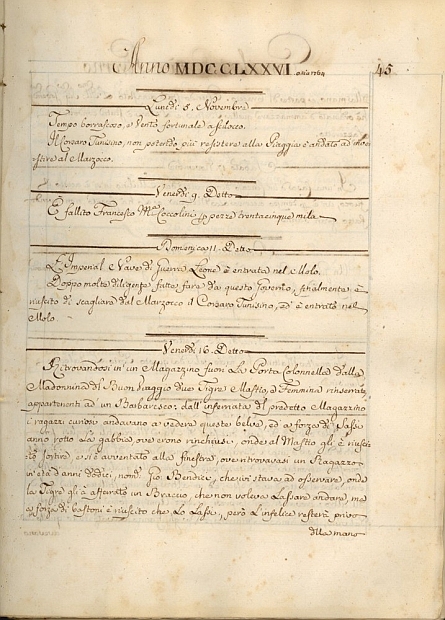 Anno MDCCLXXVI. 45
Lunedì 5. Novembre
Tempo borrascoso, e Vento fortunale a scilocco.
Il Corsaro Tunisino, non potendo più resistere alla Piaggia è andato ad inve=
stire al Marzocco.
Venerdì 9. Detto
È fallito Francesco M.a Coccolini p pezze trentacinque mila
Domenica 11. Detto
L'Imperial Nave di Guerra Leone è entrata nel Molo.
Doppo molte diligenze fatte fare da questo Governo, finalmente è
riuscito di scagliare dal Marzocco il Corsaro Tunisino, ed è entrato nel
Molo.
Venerdì 16. Detto
Ritrovandosi in un Magazzino fuori La Porta Colonnella dalla
Madonnina di Buon Viaggio due Tigre Mastio, e Femmina rinserrate
appartenenti ad un Barbaresco; dall'inferriata del predetto Magazzino
i ragazzi curiosi andavano a vedere queste belve, ed a forza di Sassi
anno rotto La gabbia ove erono rinchiusi, onde al Mastio gli è riusci
to sortire, e si è avventato alla finestra, ove ritrovavasi un Ragazzo
in età d'anni dodici, nom.to Gio. Bendici, che ivi stava ad osservare, onde
La Tigre gli à afferrato un Braccio, che non voleva Lassare andare, ma
a forza di bastoni è riuscito che Lo Lassi, però L'infelice resterà privo
della mano